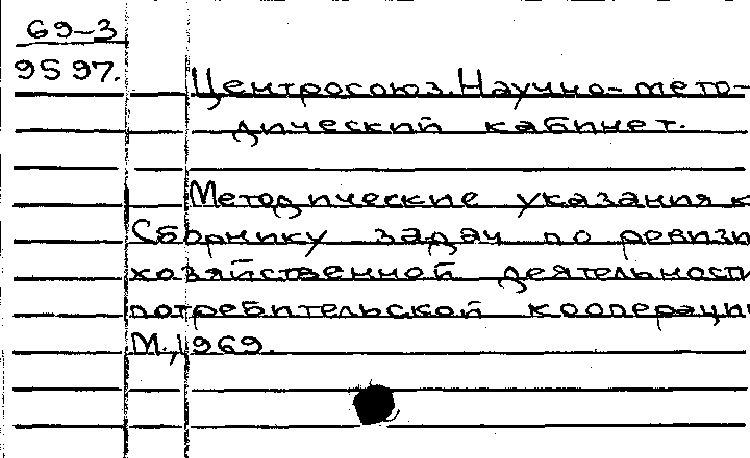 69-3
9597.
Центросоюз. Научно-мето-
дический кабинет.
Методические указания к
Сборнику задач по ревизи
хозяйственной деятельности
потребительской кооперации
М., 1969.